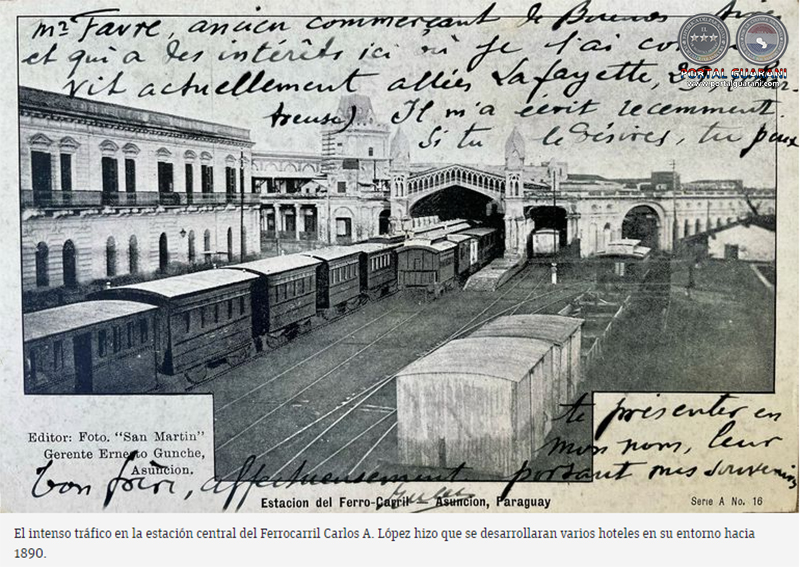 mr Favre, ancien commerçant de Buenos Aires
et qui a des intérêts ici où je l'ai
vit actuellement allées Lafayette,
Il m'a écrit recemment.
Si tu le désires, tu peux
te présenter en
mon nom, leur
portant mes souvenirs
ton frère, affectueusement
PORTAL GUARANI
www.portalguarani.com
Editor: Foto. "San Martin"
Gerente Ernesto Gunche,
Asuncion.
Estacion del Ferro-Carril - Asuncion, Paraguay
Serie A No. 16
El intenso tráfico en la estación central del Ferrocarril Carlos A. López hizo que se desarrollaran varios hoteles en su entorno hacia
1890.